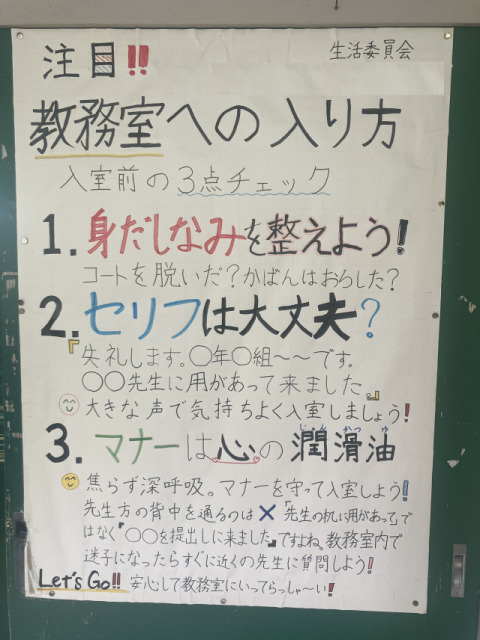 注目!!
生活委員会
教務室への入り方
入室前の3点チェック
1.身だしなみを整えよう!
コートを脱いだ?かばんはおろした?
2.セリフは大丈夫?
『失礼します。○年○組〜〜です。
○○先生に用があって来ました。』
大きな声で気持ちよく入室しましょう!
じゅん かつ ゆ
3.マナーは心の潤滑油
焦らず深呼吸。マナーを守って入室しよう!
先生方の背中を通るのは×『先生の机に用があって』で
はなく『○○を提出しに来ました』ですよね。教務室内で
迷子になったらすぐに近くの先生に質問しよう!
Let's Go!! 安心して教務室にいってらっしゃ〜い!